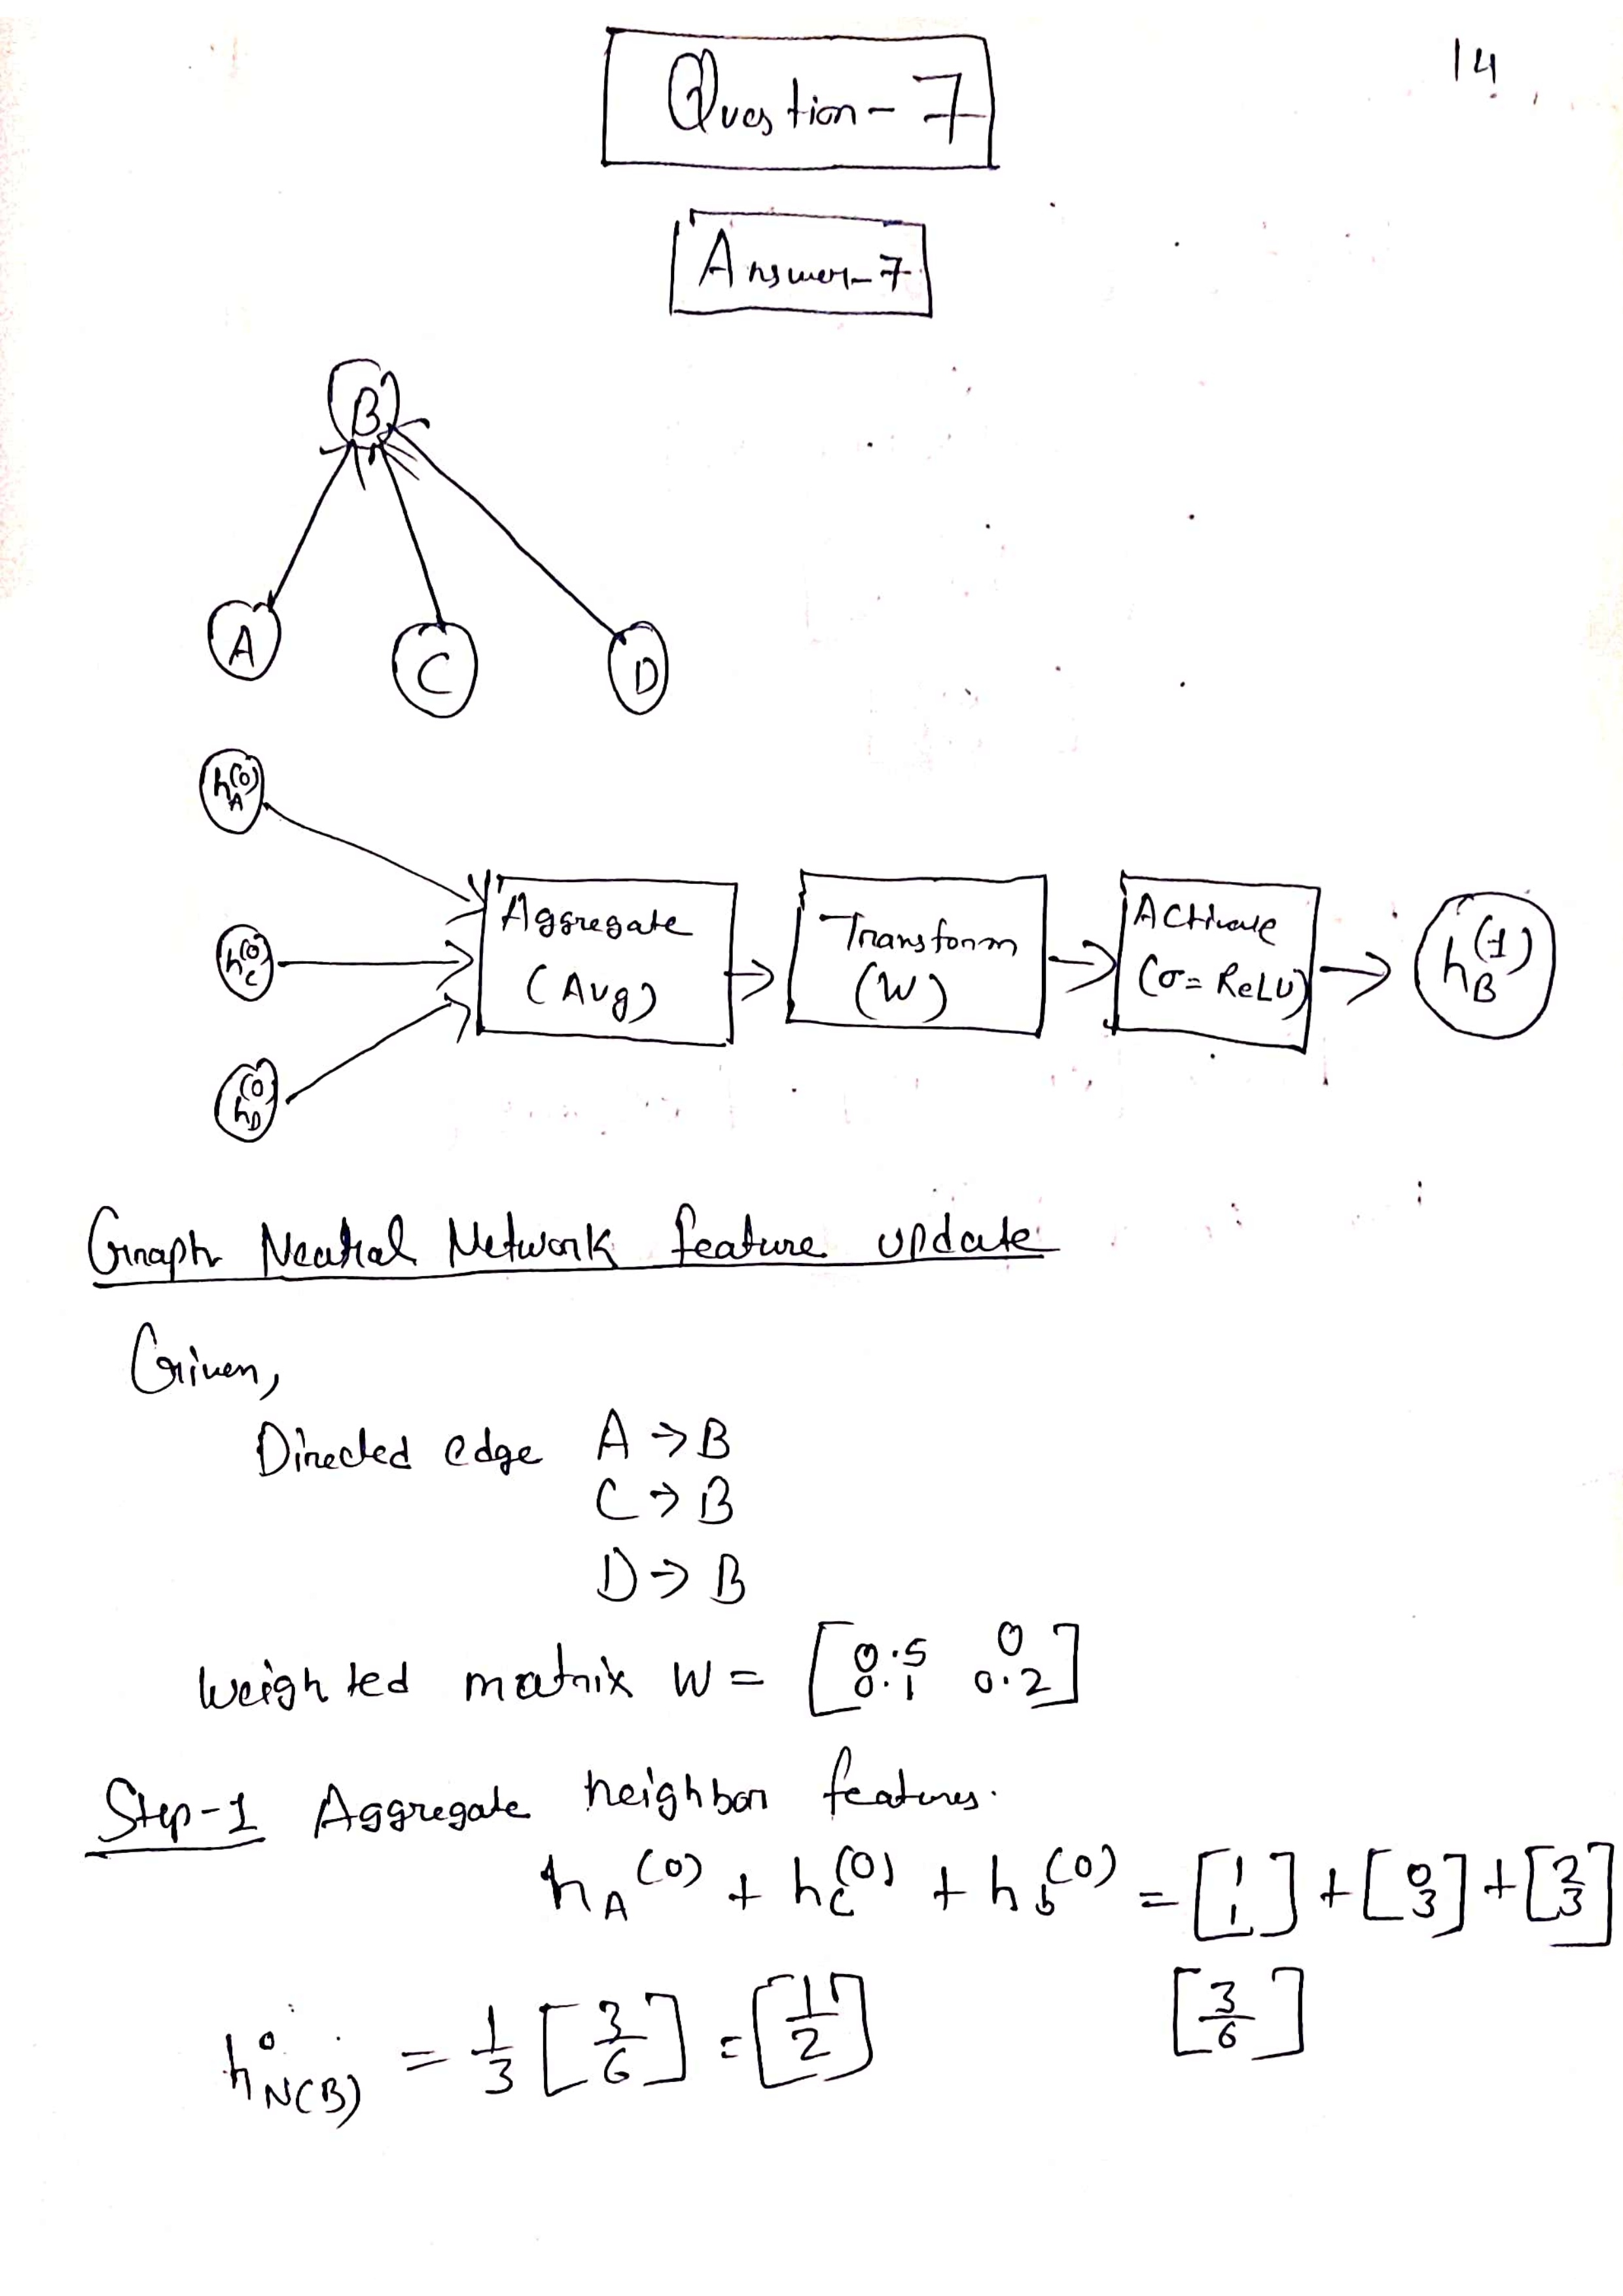 14
Question-7
Answer-7
B
A
C
D
h_A^(0)
h_C^(0)
h_D^(0)
Aggregate
(Avg)
Transform
(W)
Activate
(σ= ReLU)
h_B^(1)
Graph Neural Network feature update
Given,
Directed edge A → B
C → B
D → B
weighted matrix W = [0.5 0
0.1 0.2]
Step-1 Aggregate neighbor features.
h_A^(0) + h_C^(0) + h_D^(0) = [1 1] + [0 3] + [2 3]
[3/6]
h^0_N(B) = 1/3 [3/6] = [1/2]